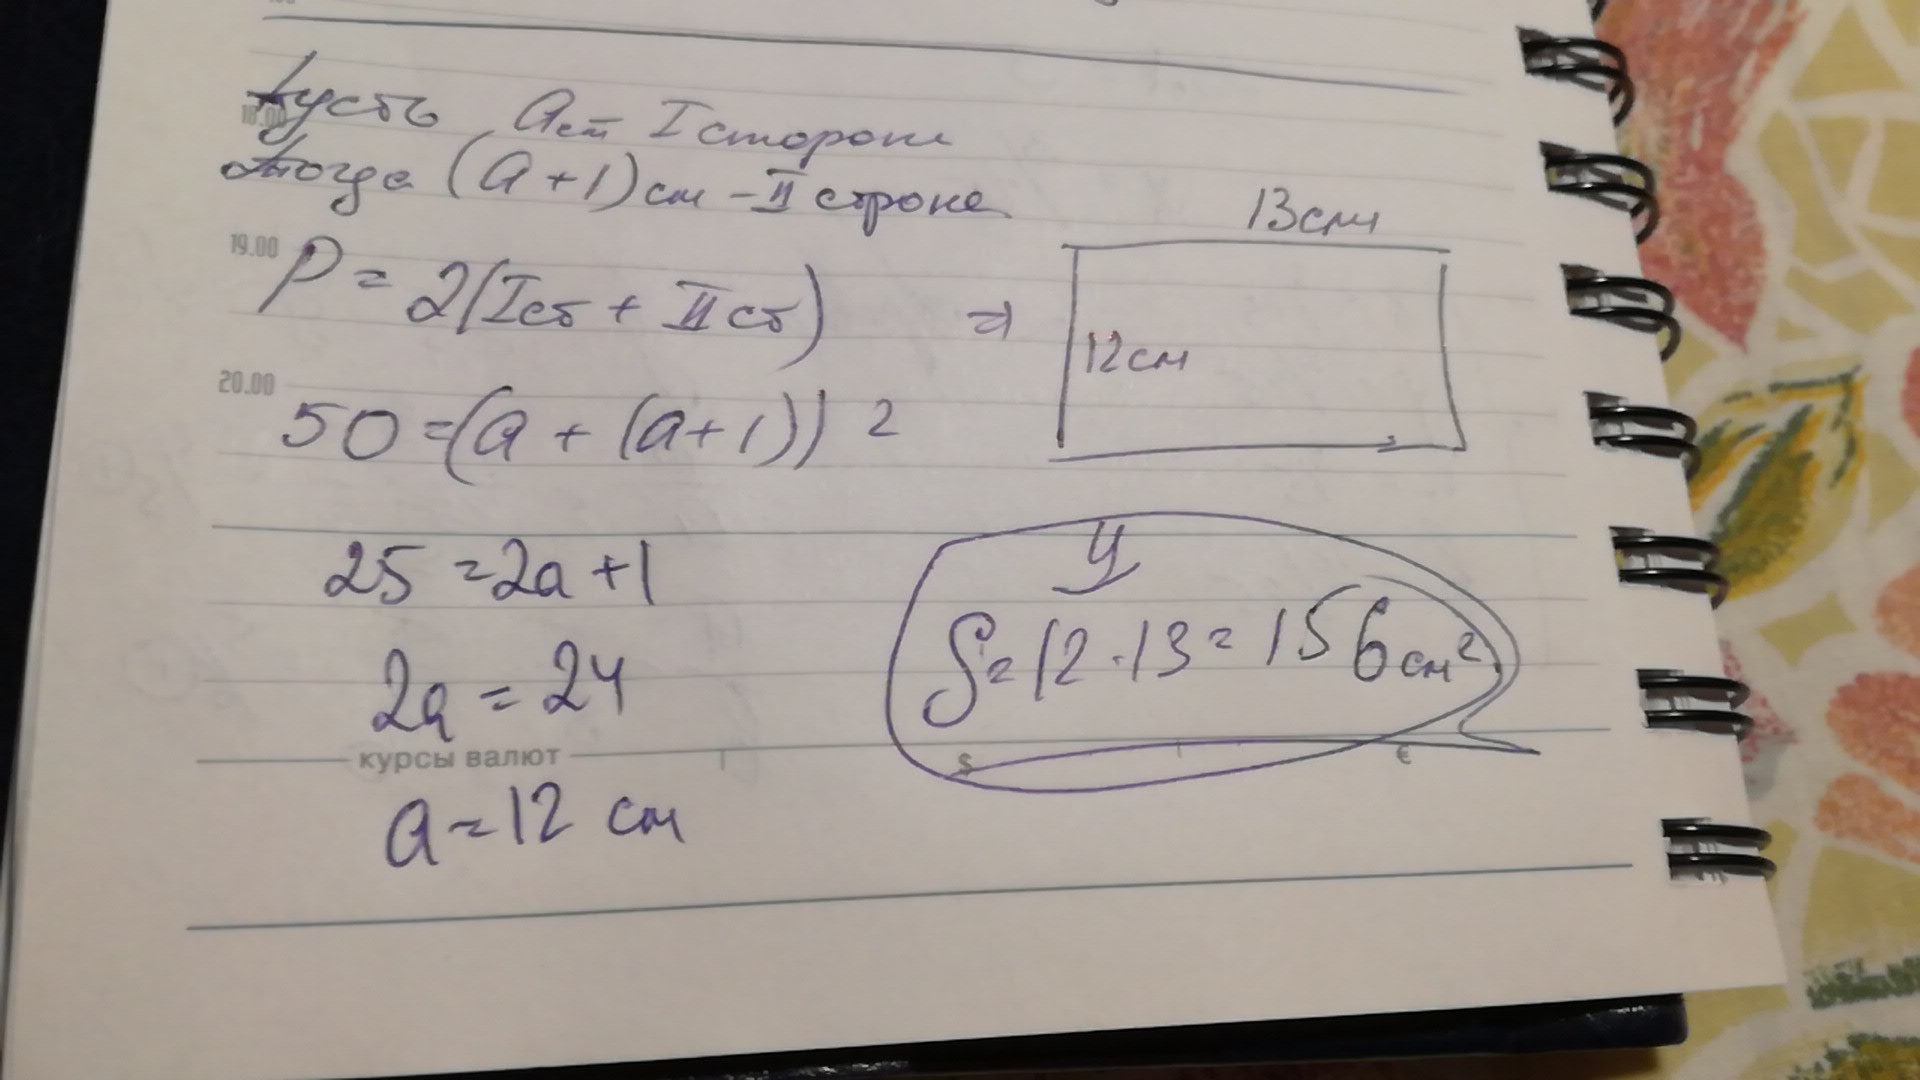 Пусть a см I сторона
18.00
тогда (a+1) см - II строна
19.00
P = 2(I ст + II ст) ⇒
13 см
12 см
20.00
50 = (a + (a+1)) 2
25 = 2a + 1
2a = 24
курсы валют
a = 12 см
S = 12 · 13 = 156 см²
$ €